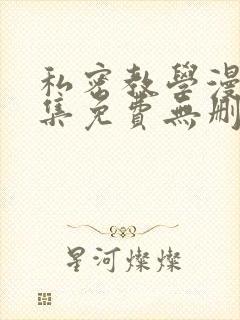 私密教學漫
集免費無刪
星河燦燦